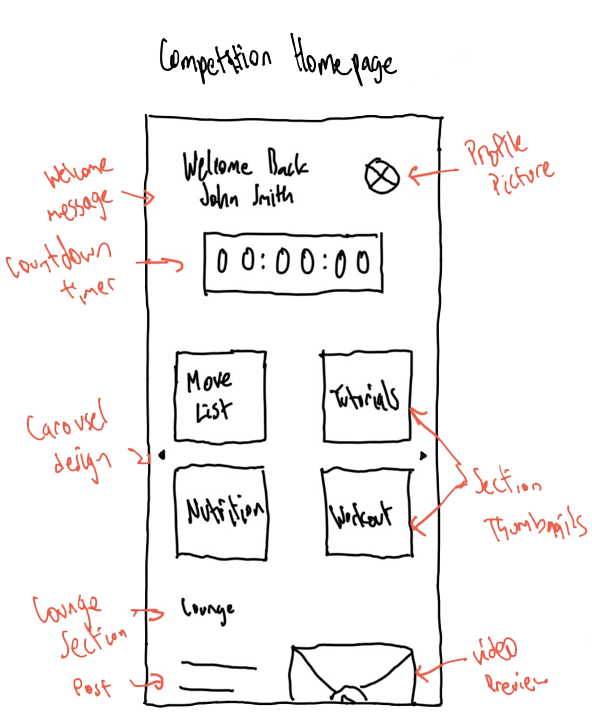 Competition Homepage
Welcome Back
John Smith
Profile
Picture
Welcome
message
Countdown
timer
00:00:00
Move
List
Tutorials
Carousel
design
Nutrition
Workout
Section
Thumbnails
Lounge
Section
Lounge
Post
Video
Preview